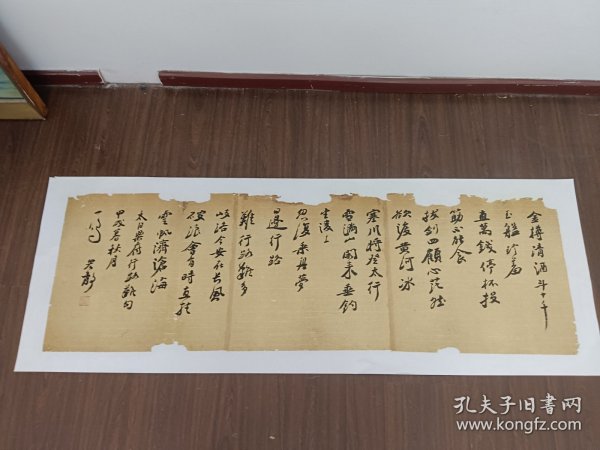 金樽清酒斗十千
玉盤珍羞
直萬錢停杯投
筯不能食
拔劍四顧心茫然
欲渡黃河冰
塞川將登太行
雪滿山閑來垂釣
坐溪上
忽復乘舟夢
日邊行路
難行路難多
歧路今安在長風
破浪會有時直挂
雲帆濟滄海
太白樂府行路難句
甲戌春秋月
孔夫子旧书网
www.kongfz.com